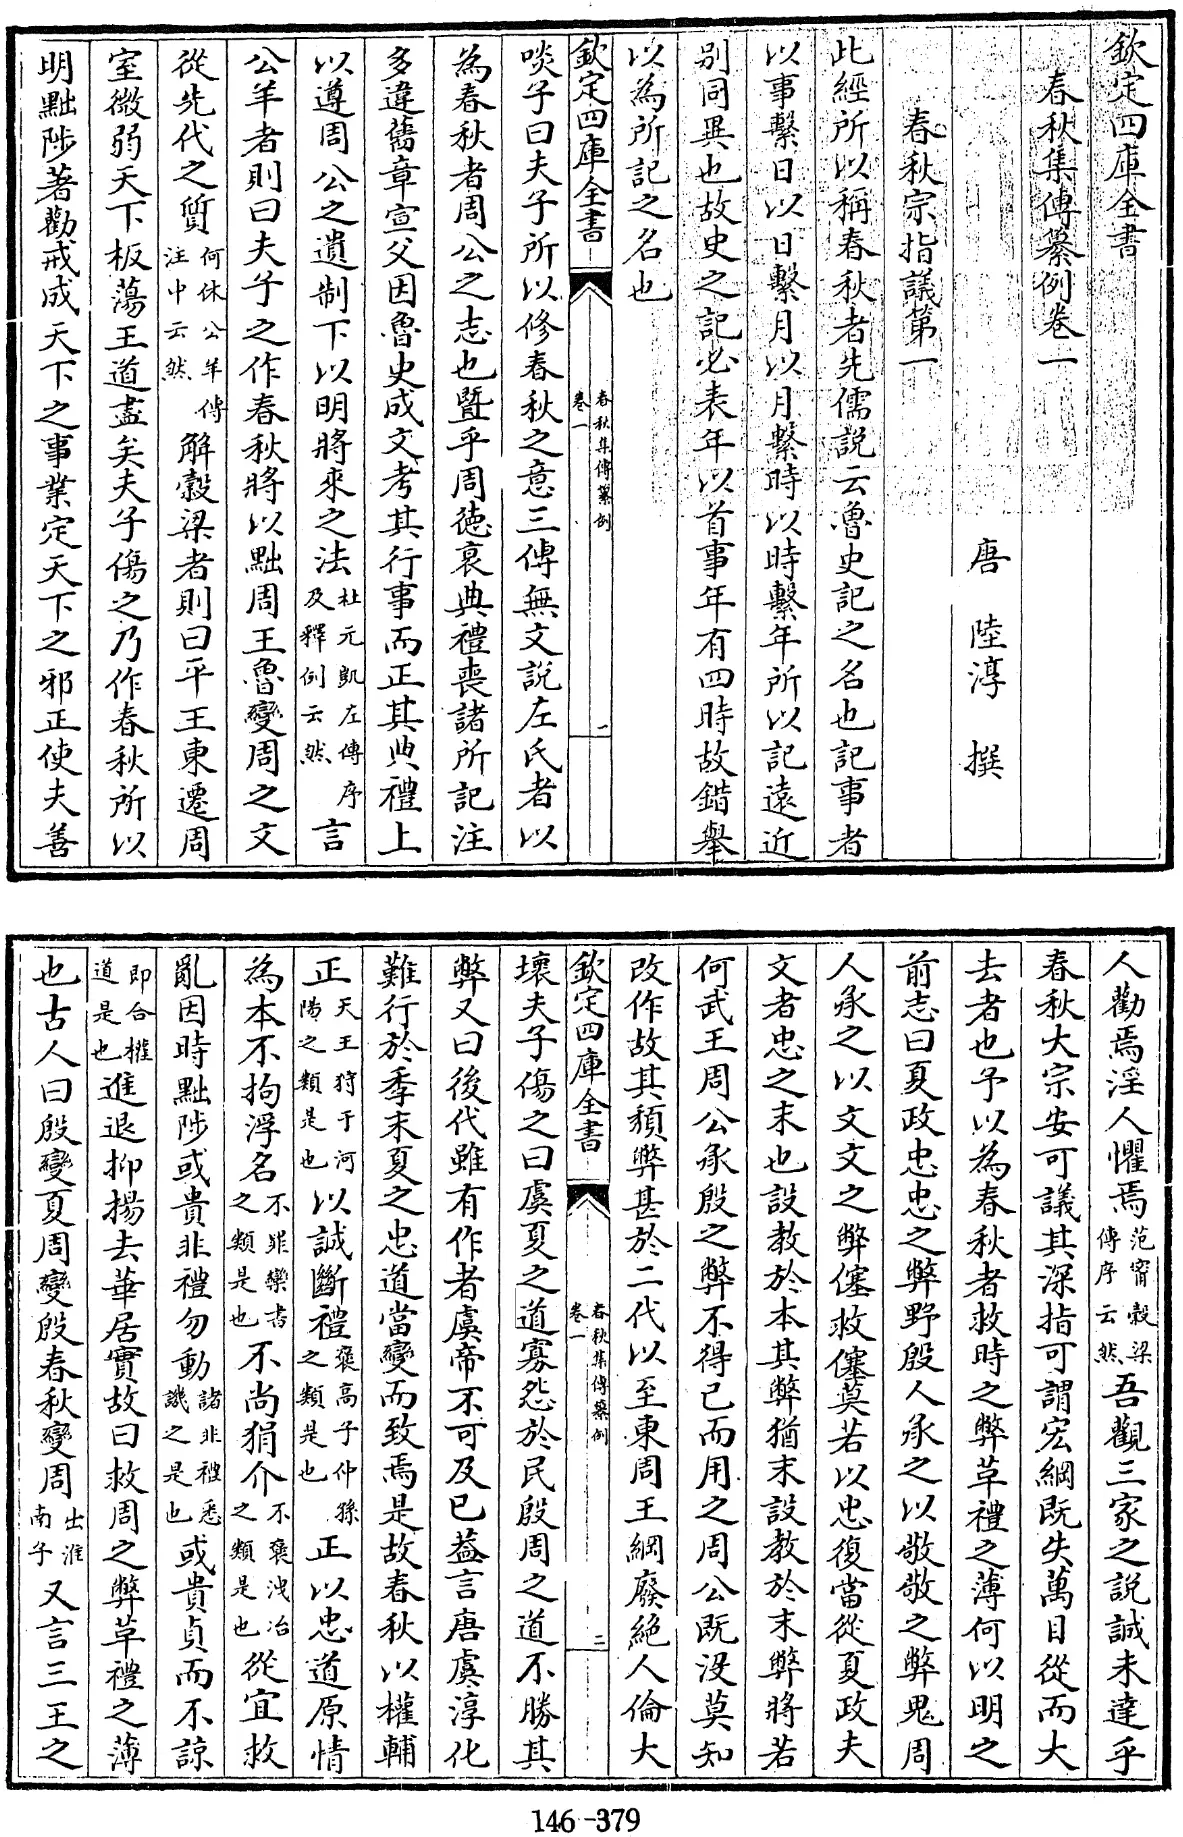 欽定四庫全書
春秋集傳纂例卷一
唐 陸淳 撰
春秋宗指議第一
此經所以稱春秋者先儒説云魯史記之名也記事者
以事繫日以日繫月以月繫時以時繫年所以記遠近
别同異也故史之記必表年以首事年有四時故錯舉
以為所記之名也
欽定四庫全書
春秋集傳纂例
卷一
一
啖子曰夫子所以修春秋之意三傳無文説左氏者以
為春秋者周公之志也暨乎周徳衰典禮喪諸所記注
多違舊章宣父因魯史成文考其行事而正其典禮上
以遵周公之遺制下以明將來之法杜元凱左傳序及釋例云然言
公羊者則曰夫子之作春秋將以黜周王魯變周之文
從先代之質何休公羊傳注中云然解穀梁者則曰平王東遷周
室微弱天下板蕩王道盡矣夫子傷之乃作春秋所以
明黜陟著勸戒成天下之事業定天下之邪正使夫善
人勸焉淫人懼焉范甯榖梁傳序云然吾觀三家之説誠未達乎
春秋大宗安可議其深指可謂宏綱既失萬目從而大
去者也予以為春秋者救時之弊革禮之薄何以明之
前志曰夏政忠忠之弊野殷人承之以敬敬之弊鬼周
人承之以文文之弊僿救僿莫若以忠復當從夏政夫
文者忠之末也設教於本其弊猶末設教於末弊將若
何武王周公承殷之弊不得已而用之周公既沒莫知
改作故其頹弊甚於二代以至東周王綱廢絶人倫大
欽定四庫全書
春秋集傳纂例
卷一
二
壞夫子傷之曰虞夏之道寡怨於民殷周之道不勝其
弊又曰後代雖有作者虞帝不可及已葢言唐虞淳化
難行於季末夏之忠道當變而致焉是故春秋以權輔
正天王狩于河陽之類是也以誠斷禮褒高子仲孫之類是也正以忠道原情
為本不拘浮名不罪欒書之類是也不尚狷介不褒洩冶之類是也從宜救
亂因時黜陟或貴非禮勿動諸非禮悉譏之是也或貴貞而不諒
即合權道是也進退抑揚去華居實故曰救周之弊革禮之薄
也古人曰殷變夏周變殷春秋變周出淮南子又言三王之
146-379